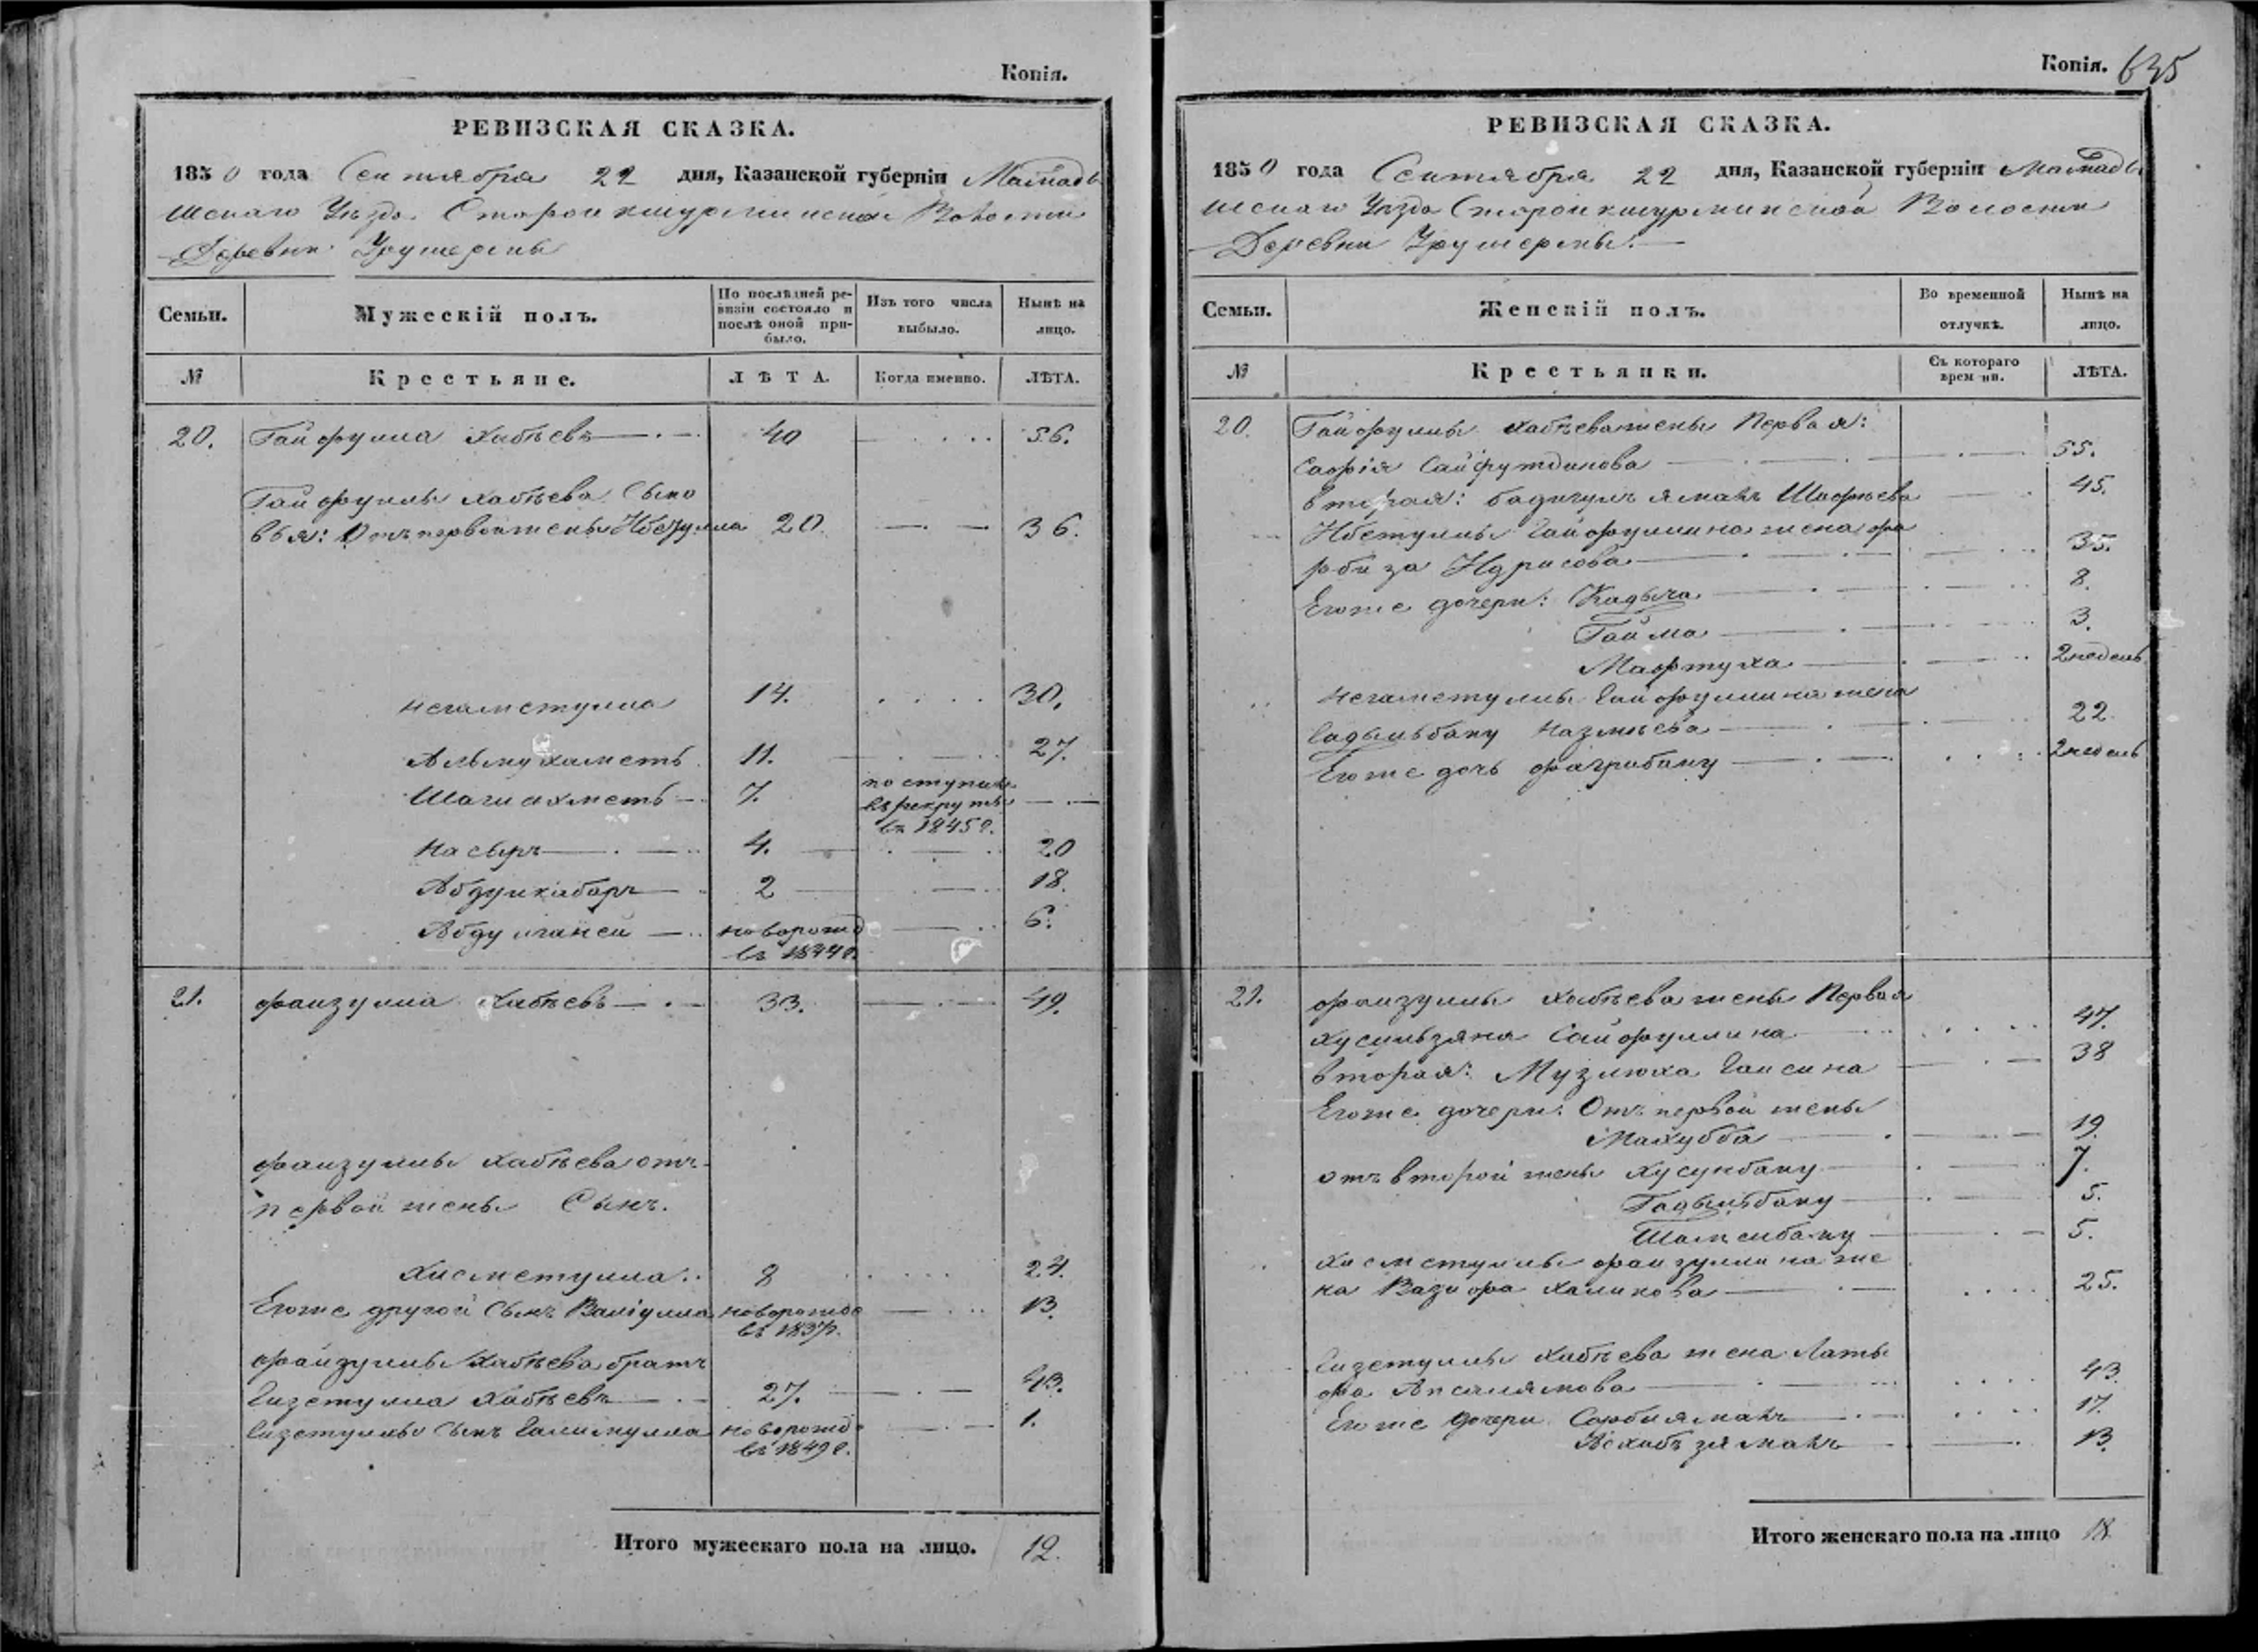 Копія.
РЕВИЗСКАЯ СКАЗКА.
1850 года Сентября 22 дня, Казанской губерніи Мамады
шскаго Уѣзда Старой кшурминской Волости
Деревни Урушермы
Семьи.
Мужескій полъ.
По послѣдней ре-
визіи состояло и
послѣ оной при-
было.
Изъ того числа
выбыло.
Нынѣ на
лицо.
№
Крестьяне.
ЛѢТА.
Когда именно.
ЛѢТА.
20. Гайфулла Хабѣевъ 40 56.
Гайфуллы Хабѣева Сыно
вья: Отъ первой жены Ибетулла 20. 36.
Негаметулла 14. 30.
Альмухаметь 11. 27.
Шагиахметь 7. поступилъ
въ рекруты
въ 1845 г.
Насыръ 4. 20
Абдулкабаръ 2 18.
Абдулганей новорожд 6.
въ 1844 г.
21. Файзулла Хабѣевъ 33. 49.
Файзуллы Хабѣева отъ
первой жены Сынъ.
Хисметулла 8 24.
Егоже другой Сынъ Валіулла новорожд 13.
въ 1837 г.
Файзуллы Хабѣева братъ
Гизетулла Хабѣевъ 27. 43.
Гизетуллы Сынъ Галимулла новорожд 1.
въ 1849 г.
Итого мужескаго пола на лицо. 12.
Копія. 635
РЕВИЗСКАЯ СКАЗКА.
1850 года Сентября 22 дня, Казанской губерніи Мамады
шскаго Уѣзда Старой кшурминской Волости
Деревни Урушермы.
Семьи.
Женскій полъ.
Во временной
отлучкѣ.
Нынѣ на
лицо.
№
Крестьянки.
Съ котораго
врем ни.
ЛѢТА.
20. Гайфуллы Хабѣева жены Первая:
Сафія Сайфутдинова 55.
вторая: Бадигулъ яманъ Шафѣева 45.
Ибетуллы Гайфуллина жена Фа
рбиза Идрисова 35.
Егоже дочери: Кадыча 8.
Гайма 3.
Мафтуха 2 недель
Негаметуллы Гайфуллина жена
Гадыльбану Назмѣева 22.
Егоже дочь Фагрибану 2 недель
21. Файзуллы Хабѣева жены Первая
Хусульзяна Сайфуллина 47.
вторая: Музлюха Гайсина 38
Егоже дочери: Отъ первой жены
Махубба 19.
отъ второй жены Хусунбану 7.
Гадыльбану 5.
Шамсибану 5.
Хисметуллы Файзуллина же
на Вазифа Халикова 25.
Гизетуллы Хабѣева жена Латы
фа Апсалямова 43.
Егоже дочери Сахбиямалъ 17.
Асхабъзяманъ 13.
Итого женскаго пола на лицо 18.